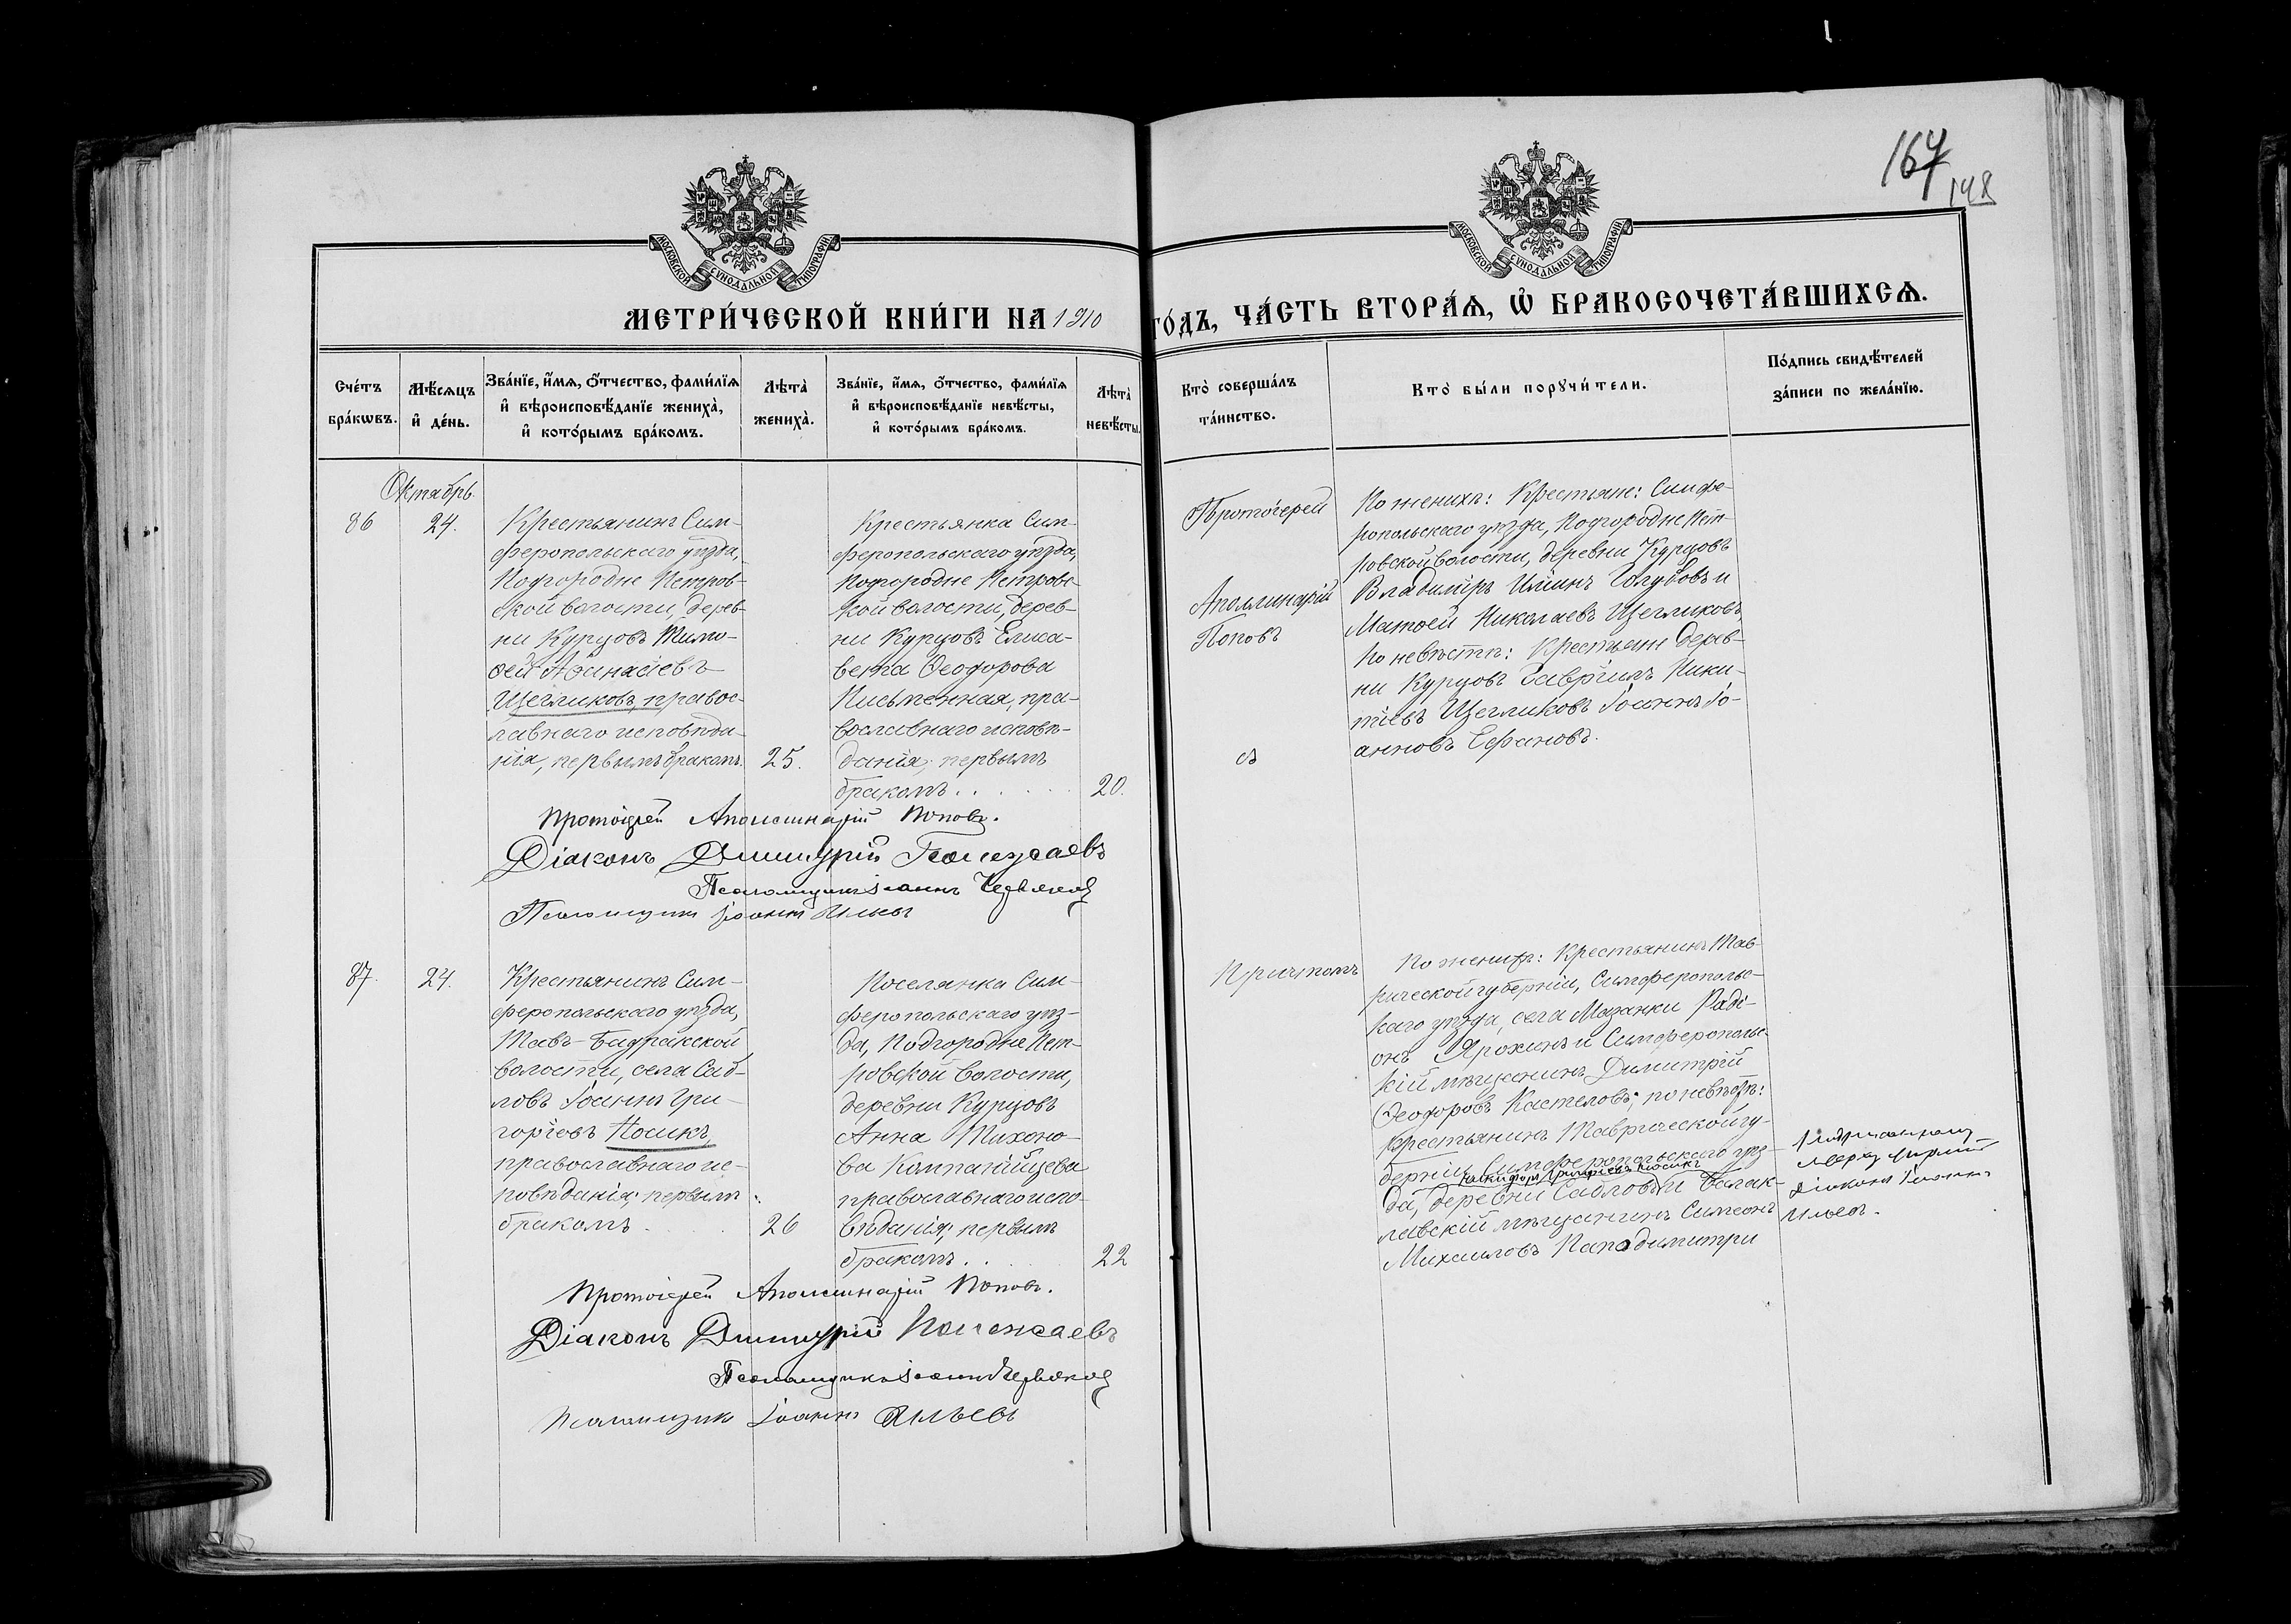 164
148
МОСКОВСКОЙ СѴНОДАЛЬНОЙ ТИПОГРАФІИ
МОСКОВСКОЙ СѴНОДАЛЬНОЙ ТИПОГРАФІИ
МЕТРИ́ЧЕСКОЙ КНИ́ГИ НА 1910
ГО́ДЪ, ЧА́СТЬ ВТОРА́Ѧ, Ѡ҆ БРАКОСОЧЕТА́ВШИХСѦ.
Сче́тъ
бра́кѡвъ.
Мѣ́сѧцъ
и҆ де́нь.
Зва́нїе, и҆́мѧ, ѻ҆́тчество, фами́лїѧ
и҆ вѣроисповѣ́данїе жениха̀,
и҆ кото́рымъ бра́комъ.
Лѣта̀
жениха̀.
Зва́нїе, и҆́мѧ, ѻ҆́тчество, фами́лїѧ
и҆ вѣроисповѣ́данїе невѣ́сты,
и҆ кото́рымъ бра́комъ.
Лѣта̀
невѣ́сты.
Кто̀ соверша́лъ
та́инство.
Кто̀ бы́ли порꙋчи́тели.
По́дпись свидѣ́телей
за́писи по жела́нїю.
Октябрь.
86
24.
Крестьянинъ Сим-
феропольскаго уѣзда,
Подгородне Петров-
ской волости, дерев-
ни Курцовъ Тимо-
ѳей Аѳанасіевъ
Щегликовъ, правос-
лавнаго исповѣда-
нія, первымъ бракомъ.
25.
Крестьянка Сим-
феропольскаго уѣзда,
Подгородне Петровс-
кой волости, дерев-
ни Курцовъ Елиса-
вета Ѳеодорова
Письменная, пра-
вославнаго исповѣ-
данія, первымъ
бракомъ . . .
20.
Протоіерей
Аполлинарій
Поповъ
съ
По женихѣ: Крестьяне: Симфе-
ропольскаго уѣзда, Подгородне Пет-
ровской волости, деревни Курцовъ
Владиміръ Иліинъ Голубовъ и
Матѳей Николаевъ Щегликовъ,
По невѣстѣ: Крестьяне дерев-
ни Курцовъ Гавріилъ Ники-
тіевъ Щегликовъ Іоаннъ Іо-
анновъ Сафановъ.
Протоіерей Аполлинарій Поповъ.
Діаконъ Димитрій Полежаевъ
Псаломщикъ Іоаннъ Червяков
Псаломщикъ Іоаннъ Ильевъ
87.
24.
Крестьянинъ Сим-
феропольскаго уѣзда,
Тавъ-Бадракской
волости, села Саб-
ловъ Іоаннъ Гри-
горіевъ Носикъ,
православнаго ис-
повѣданія, первымъ
бракомъ
26
Поселянка Сим-
феропольскаго уѣз-
да, Подгородне Пет-
ровской волости,
деревни Курцовъ
Анна Тихоно-
ва Компанійцева
православнаго испо-
вѣданія, первымъ
бракомъ . .
22
Причтомъ
По женихѣ: Крестьянинъ Тав-
рической губерніи, Симферопольс-
каго уѣзда, села Мазанки Раді-
онъ Ярохинъ и Симферопольс-
кій мѣщанинъ Димитрій
Ѳеодоровъ Кастеловъ; по невѣстѣ:
Крестьянинъ Таврической гу-
берніи Симферопольскаго уѣз-
Григоріевъ Носикъ
да, деревни Сабловъ и Балак-
лавскій мѣщанинъ Симеонъ
Михаиловъ Пападимитри
Діакона Іоанна
Ильева.
Протоіерей Аполлинарій Поповъ.
Діаконъ Димитрій Полежаевъ
Псаломщикъ Іоаннъ Червяков
Псаломщикъ Іоаннъ Ильевъ